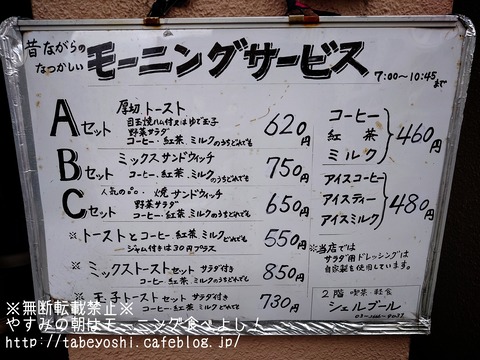 昔ながらの
なつかしい
モーニングサービス
7:00~10:45まで
Aセット
厚切トースト
目玉焼ハム付又はゆで玉子
野菜サラダ
コーヒー・紅茶・ミルクのうちどれでも
620円
Bセット
ミックスサンドウィッチ
コーヒー・紅茶・ミルクのうちどれでも
750円
Cセット
人気の 焼サンドウィッチ
野菜サラダ
コーヒー・紅茶・ミルクのうちどれでも
650円
※トーストとコーヒー・紅茶・ミルクどれでも
ジャム付きは30円プラス
550円
※ミックストーストセット サラダ付き
コーヒー・紅茶・ミルクのうちどれでも
850円
※玉子トーストセット サラダ付き
コーヒー・紅茶・ミルクどれでも
730円
コーヒー
紅茶
ミルク
460円
アイスコーヒー
アイスティー
アイスミルク
480円
※当店では
サラダ用ドレッシングは
自家製を使用しています。
2階 喫茶・軽食
シェルブール
※無断転載禁止※
やすみの朝はモーニング食べよし!
http://tabeyoshi.cafeblog.jp/